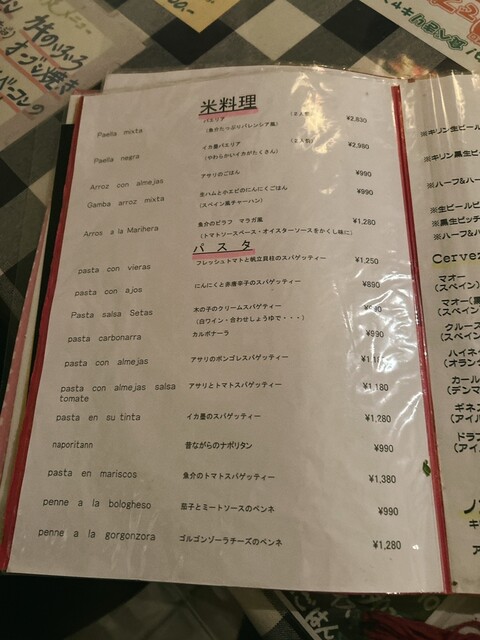 米料理
Paella mixta パエリア (2人前) ¥2,830
(魚介たっぷりバレンシア風)
Paella negra イカ墨パエリア (2人前) ¥2,980
(やわらかいイカがたくさん)
Arroz con almejas アサリのごはん ¥990
Gamba arroz mixta 生ハムとホエビのにんにくごはん ¥990
(スペイン風チャーハン)
Arros a la Marihera 魚介のピラフ マラガ風 ¥1,280
(トマトソースベース・オイスターソースをかくし味に)
パスタ
pasta con vieras フレッシュトマトと帆立貝柱のスパゲッティー ¥1,250
pasta con ajos にんにくと赤唐辛子のスパゲッティー ¥890
Pasta salsa Setas 木の子のクリームスパゲティー
(白ワイン・合わせしょうゆで・・・)
pasta carbonarra カルボナーラ ¥990
pasta con almejas アサリのボンゴレスパゲッティー
pasta con almejas salsa tomate アサリとトマトスパゲッティー ¥1,180
pasta en su tinta イカ墨のスパゲッティー ¥1,280
naporitann 昔ながらのナポリタン ¥990
pasta en mariscos 魚介のトマトスパゲッティー ¥1,380
penne a la bologheso 茄子とミートソースのペンネ ¥990
penne a la gorgonzora ゴルゴンゾーラチーズのペンネ ¥1,280
※キリン生ビール
※キリン黒生ビ
※ハーフ&ハー
※生ビールピ
※黒生ピッチ
※ハーフ&ハ
Cervez
マオー
(スペイン)
マオー(黒
(スペイン
クルース
(スペイン
ハイネイ
(オランダ
カール
(デンマ
ギネス
(アイル
ドラフ
(アイル